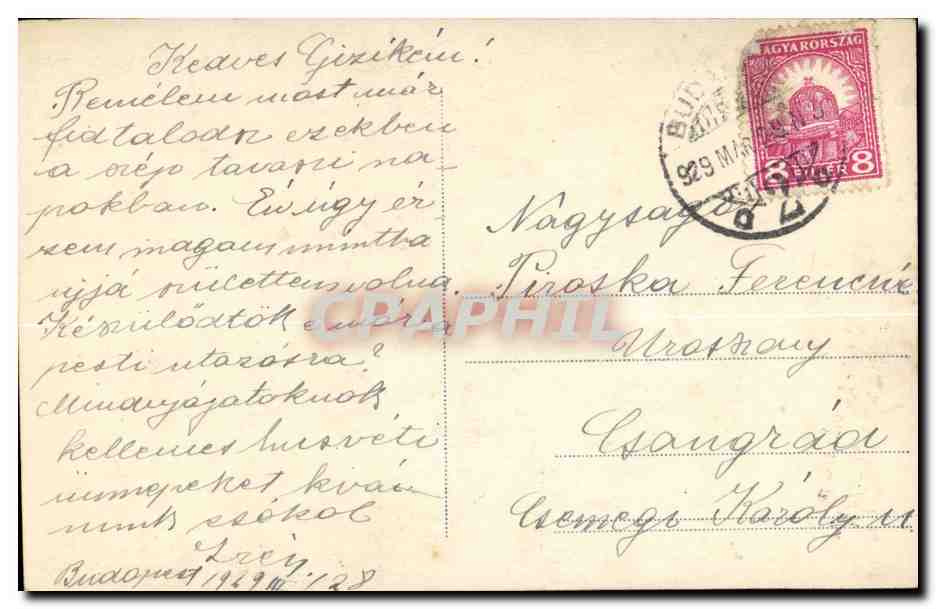 Kedves Gizikém!
Remélem most már
fidtalodsz ezekben
a szép tavaszi na-
pokban. Én úgy ér-
zem magam mintha
ujjá születtem volna.
Készülődtök e már a
pesti utazásra?
Mindnyájatoknak
kellemes husvéti
ünnepeket kván-
nunk csókol
Irén
Budapest 1929 III/28
MAGYARORSZÁG
8 FILLÉR 8
BUDAPEST
929 MÁR
Nagysagos
Piroska Ferencné
Uroszony
Csongrád
Csemegi Károly u
CPARHIL